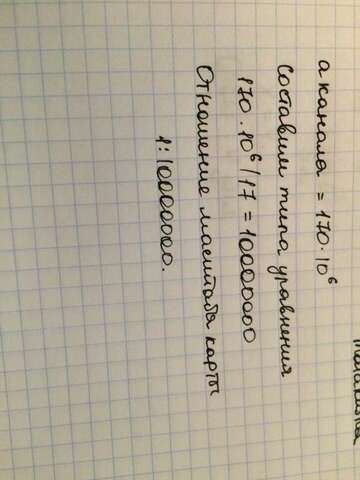 а канала = 170·10⁶
Составим типа уравнения
170·10⁶/17 = 10000000
Отношение масштаба карты
1:10000000.